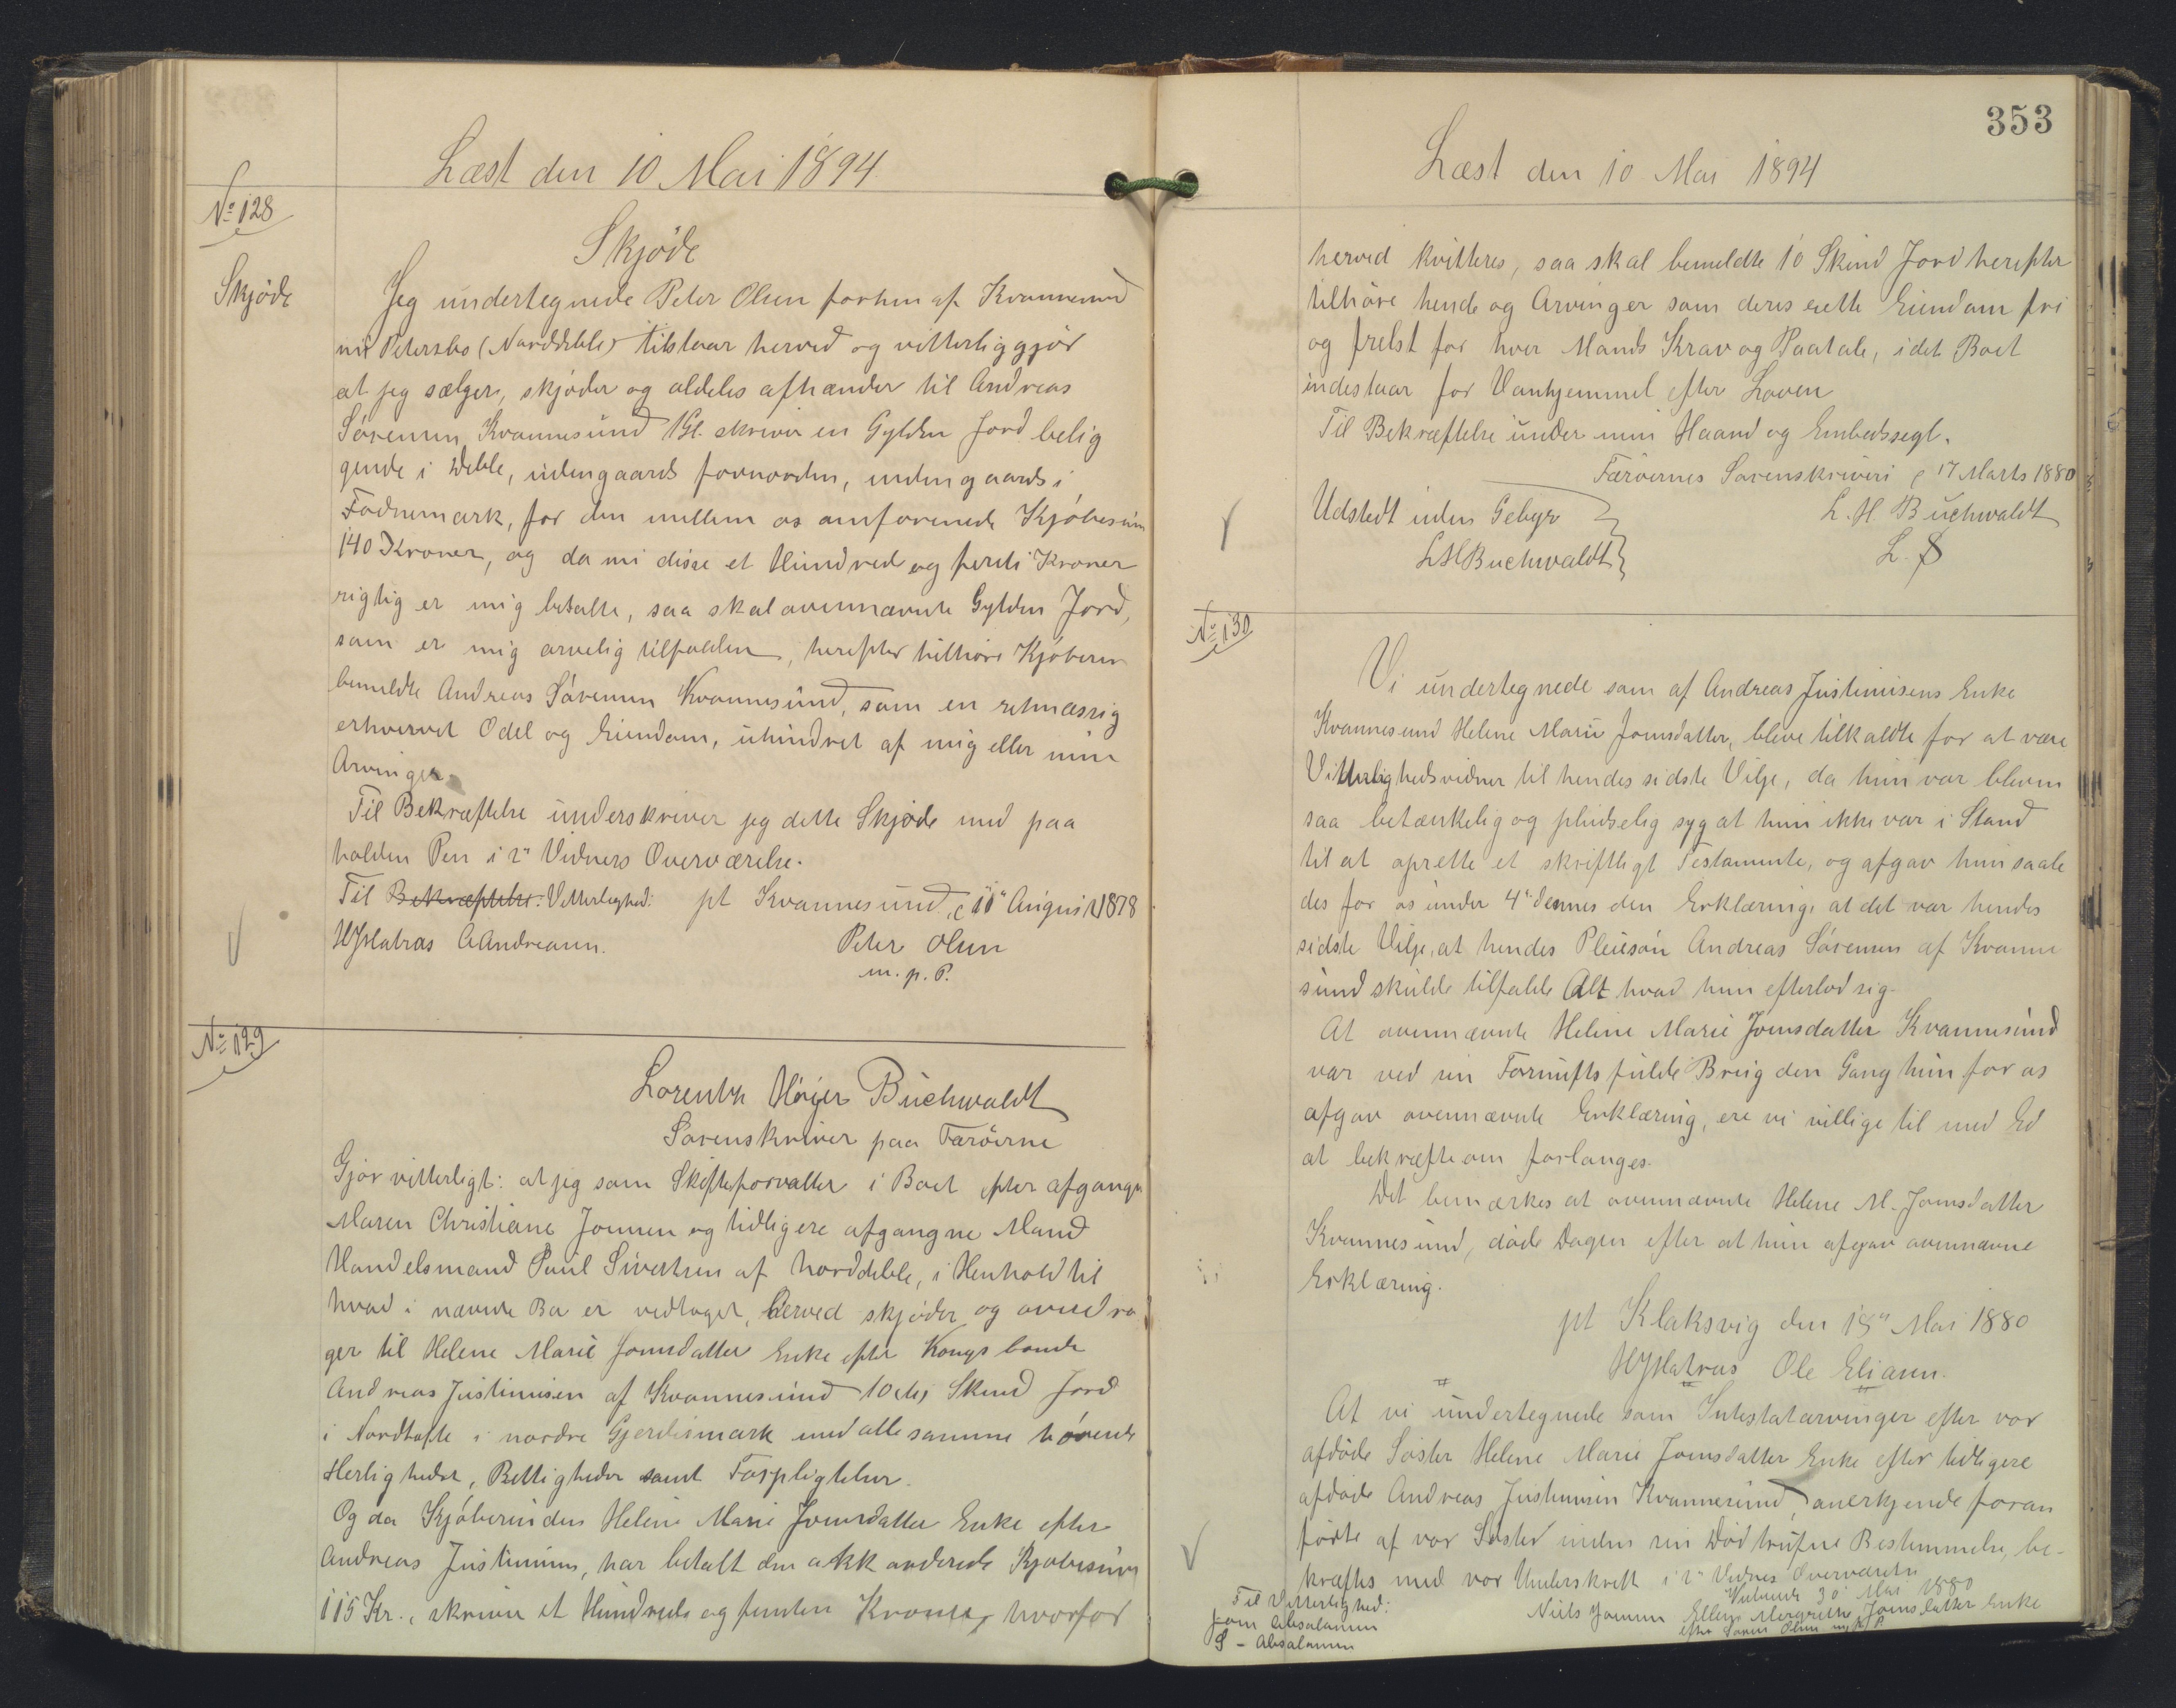 Læst den 10 Mai 1894
No 128
Skjöde
Skjöde
Jeg undertegnede Peter Olsen forhen af Kvannesund
nu Petersbo (Norddeble) tilstaar herved og vitterliggjör
at jeg sælger, skjöder og aldeles afhænder til Andreas
Sörensen Kvannesund 1 Gl. skriver en Gylden Jord belig
gende i Deble, udengaards fornorden, indengaards i
Fodnemark, for den mellem os omforenede Kjöbesum
140 Kroner, og da nu disse et Hundrede og firti Kroner
rigtig er mig betalte, saa skal ovennævnte Gylden Jord,
som er mig arvelig tilfalden, herefter tilhöre Kjöberen
bemeldte Andreas Sörensen Kvannesund, som en retmæssig
erhvervet Odel og Eiendom, uhindret af mig eller mine
Arvinger.
Til Bekræftelse underskriver jeg dette Skjöde med paa
holden Pen i 2de Vidners Overværelse.
Til Bekræftelse: Vitterlighed: pt Kvannesund, d 10 August 1878
HJHatras C Andreasen. Peter Olsen
m. p. P.
No 129
Lorentz Höyer Buchwaldt
Sorenskriver paa Færöerne
Gjör vitterligt: at jeg som Skifteforvalter i Boet efter afgangne
Maren Christiane Joensen og tidligere afgangne Mand
Handelsmand Poul Sivertsen af Norddeble, i Henhold til
hvad i nævnte Bo er vedtaget, herved skjöder og overdra
ger til Helene Marie Joensdatter Enke efter Kongsbonde
Andreas Justinussen af Kvannesund 10 ti Skind Jord
i Nordtofte i nordre Gjerdismark med alle samme hörende
Herligheder, Rettigheder samt Forpligtelser.
Og da Kjöberinden Helene Marie Joensdatter Enke efter
Andreas Justinussen, har betalt den akkorderede Kjöbesum
115 Kr., skriver et Hundrede og femten Kroner, hvorfor
353
Læst den 10 Mai 1894
herved kvitteres, saa skal bemeldte 10 Skind Jord herefter
tilhöre hende og Arvinger som deres rette Eiendom fri
og frelst for hver Mands Krav og Paatale, idet Boet
indestaar for Vanhjemmel efter Loven
Til Bekræftelse under min Haand og Embedssegl.
Færöernes Sorenskriveri d 17 Marts 1880
Udstedt uden Gebyr L. H Buchwaldt
LHBuchwaldt L. S
No 130
Vi undertegnede som af Andreas Justinusens Enke
Kvannesund Helene Marie Joensdatter, bleve tilkaldte for at være
Vitterlighedsvidner til hendes sidste Vilje, da hun var bleven
saa betænkelig og pludselig syg at hun ikke var i Stand
til at oprette et skriftligt Testamente, og afgav hun saale
des for os under 4de dennes den Erklæring, at det var hendes
sidste Vilje, at hendes Pleiesön Andreas Sörensen af Kvanne
sund skulde tilfalde Alt hvad hun efterlod sig.
At ovennævnte Helene Marie Joensdatter Kvannesund
var ved sin Fornufts fulde Brug den Gang hun for os
afgav ovennævnte Erklæring, ere vi villige til med Ed
at bekræfte om forlanges.
Det bemærkes at ovennævnte Helene M. Joensdatter
Kvannesund, döde Dagen efter at hun afgav ovennævne
Erklæring.
pt Klaksvig den 15de Mai 1880
HJHatras Ole Eliasen.
At vi undertegnede som Intestatarvinger efter vor
afdöde Söster Helene Marie Joensdatter Enke efter tidligere
afdöde Andreas Justinusen Kvannesund, anerkjende foran
förte af vor Söster inden sin Död trufne Bestemmelse, be-
kræftes med vor Underskrift i 2de Vidnes Overværelse
30 Mai 1880
Til Vitterlighed: Niels Joensen Ellen Margrethe Joensdatter Enke
Joen Absalonsen efter Sören Olsen m. p. P
S - Absalonsen